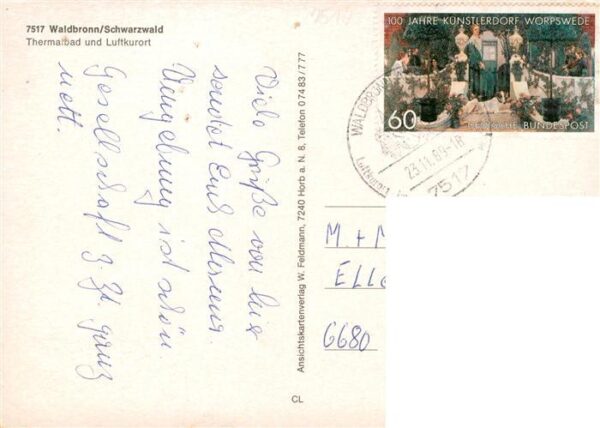 7517 Waldbronn/Schwarzwald
Thermalbad und Luftkurort
Viele Grüße von hier
sendet Euch
Umgebung ist schön
Gesellschaft z. Zt. ganz
nett.
Ansichtskartenverlag W. Feldmann, 7240 Horb a. N. 8, Telefon 07483/777
CL
100 JAHRE KÜNSTLERDORF WORPSWEDE
60 DEUTSCHE BUNDESPOST
WALDBRONN
23.11.89-18
Luftkurort
7517
M. +
6680